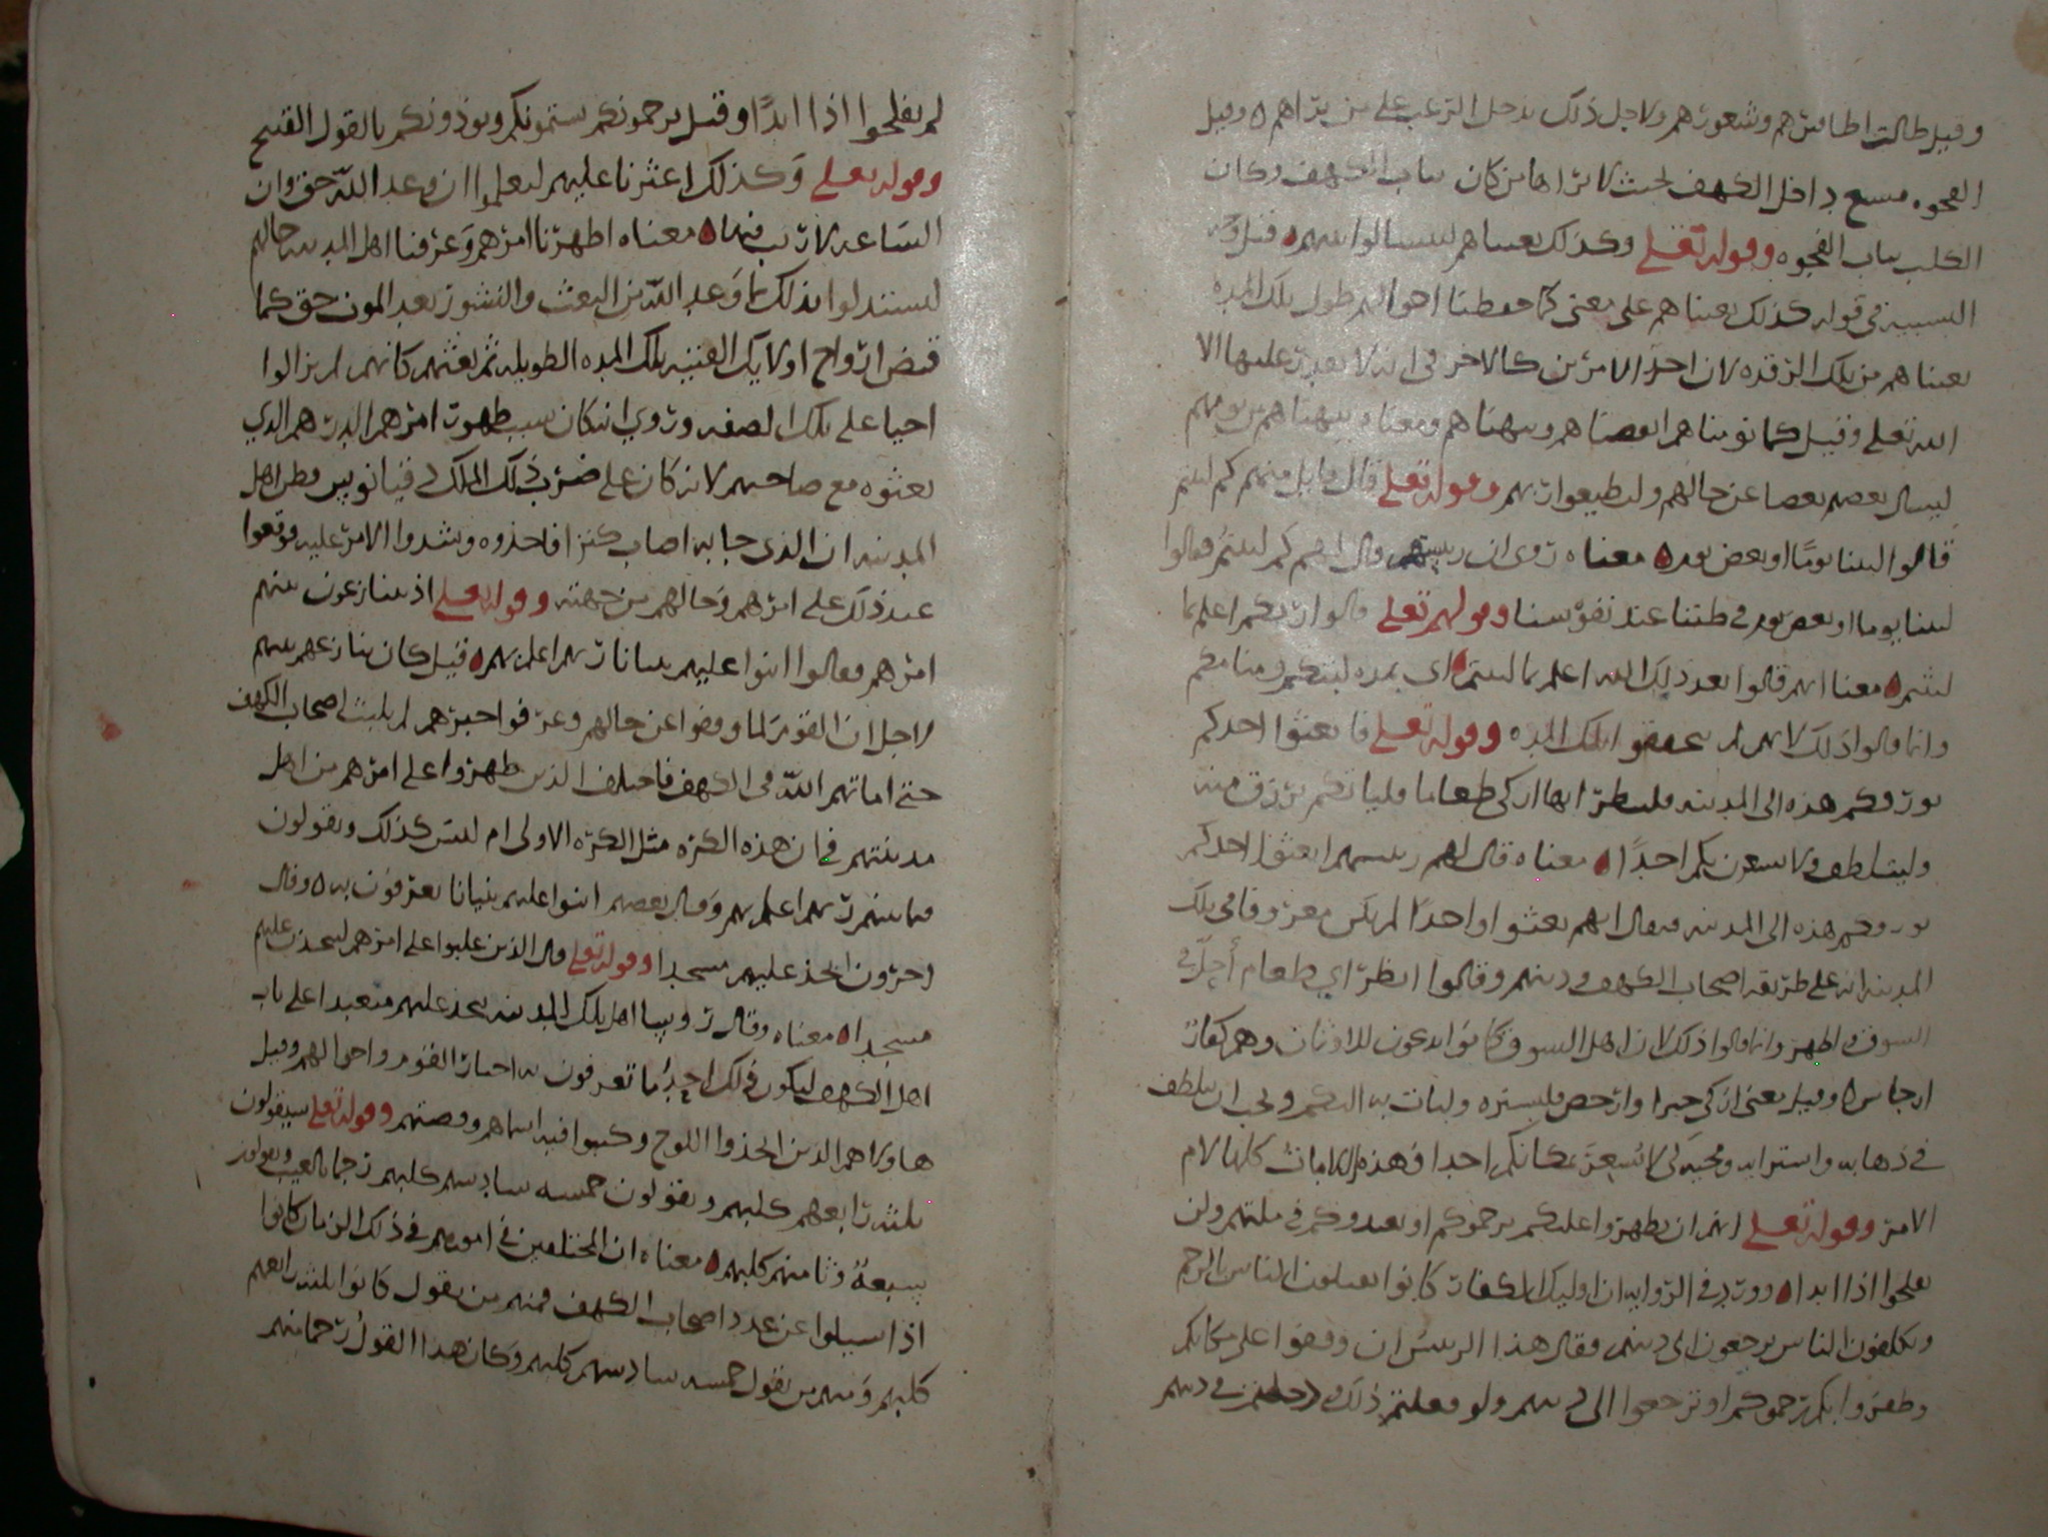 وقيل طالت اظافيرهم وشعورهم ولاجل ذلك يدخل الرعب على من يراهم ٥ وقيل
الفجوه متسع داخل الكهف بحيث لا يراها من كان بباب الكهف وكان
الكلب بباب الفجوه وقوله تعلى وكذلك بعثناهم ليتسالوا بينهم ٥ قيل وجه
التشبيه في قوله كذلك بعثناهم على معنى كما حفظنا احوالهم طول تلك المده
بعثناهم من تلك الرقده لان احد الامرين كالاخر في انه لا يقدر عليها الا
الله تعلى وقيل كما نومناهم ايقضناهم ونبهناهم ومعناه ونبهناهم من نومهم
ليسال بعضهم بعضا عن حالهم وليطيعوا ربهم وقوله تعلى قال قايل منهم كم لبثتم
قالوا لبثنا يومًا او بعض يوم ٥ معناه روي ان رييسهم قال لهم كم لبثتم فقالوا
لبثنا يوما او بعض يوم في ظننا عند نفوسنا وقولهم تعلى قالوا ربكم اعلم بما
لبثتم ٥ معنا انهم قالوا بعد ذلك الله اعلم بما لبثتم اي بمده لبثكم ومنامكم
وانما قالوا ذلك لانهم لم يحققوا تلك المده وقوله تعلى فابعثوا احدكم
بورقكم هذه الى المدينه فلينظر ايها ازكى طعاما فلياتكم برزق منه
وليتلطف ولا يشعرن بكم احدًا ٥ معناه قال لهم رييسهم ابعثوا احدكم
بورقكم هذه الى المدينه فيقال انهم بعثوا واحدًا لم يكن معروفا في تلك
المدينه انه على طريقه اصحاب الكهف في دينهم وقالوا انظر اي طعام أجلّ في
السوق واطهر وانما قالوا ذلك لان اهل السوق كانوا يدعون للاوثان وهم كفار
ارجاس ٥ وقيل يعنى ازكى خبرا وارخص فليشتره وليات به اليكم ويجب ان يتلطف
في ذهابه واسترايه ومجيه لئلا يُشعِرَ بمكانكم احدا فهذه اللامات كلها لام
الامر وقوله تعلى انهم ان يظهروا عليكم يرجموكم او يعيدوكم في ملتهم ولن
تفلحوا اذا ابدا ٥ وورد في الروايه ان اوليك الكفار كانوا يقتلون الناس بالرجم
ويكلفون الناس يرجعون الى دينهم فقال هذا الرييس ان وقفوا على مكانكم
وظفروا بكم رجموكم او ترجعوا الى دينهم ولو فعلتم ذلك ودخلتم في دينهم
لم تفلحوا اذا ابدًا وقيل يرجمونكم يشتمونكم ويوذونكم بالقول القبيح
وقوله تعلى وَكذلك اعثرنا عليهم ليعلموا ان وعد اللّه حق وان
السَاعه لا ريب فيها ٥ معناه اظهرنا امرهم وَعرفنا اهل المدينه حالهم
ليستدلوا بذلك بما وَعد اللّه من البعث والنشور بعد الموت حق كما
قبض ارواح اولايك الفتيه تلك المده الطويله ثم بعثهم كانهم لم يزالوا
احيا على تلك الصفه وروي انه كان سبب ظهور امرهم الدرهم الذي
بعثوه مع صاحبهم لانه كان على ضرب ذلك الملك دقيانوس وظن اهل
المدينه ان الذي جا به اصاب كنزا فاخذوه وشددوا الامر عليه فوقعوا
عند ذلك على امرهم وَحالهم من جهته وقوله تعلى اذ يتنازعون بينهم
امرهم فقالوا ابنوا عليهم بنيانا ربهم اعلم بهم ٥ قيل كان تنازعهم بينهم
لاجل ان القوم لما وقفوا عن حالهم وعرفوا خبرهم لم يلبث اصحاب الكهف
حتى اماتهم اللّه في الكهف فاختلف الذين ظهروا على امرهم من اهل
مدينتهم في ان هذه الكره مثل الكره الاولى ام ليس كذلك ويقولون
فيما بينهم ربهم اعلم بهم وَقال بعضهم ابنوا عليهم بنيانا يعرفون به ٥ وقال
اخرون اتخذ عليهم مسجدا وقوله تعلى قال الذين غلبوا على امرهم لنتخذن عليهم
مسجدا ٥ معناه وقال روسا اهل تلك المدينه نتخذ عليهم متعبدا على باب
اهل الكهف ليكون ذلك احدًا ما تعرفون به اخبار القوم واحوالهم وقيل
هاولا هم الذين اتخذوا اللوح وكتبوا فيه اسماهم وقصتهم وقوله تعلى سيقولون
ثلثه رابعهم كلبهم ويقولون خمسه سادسهم كلبهم رجما بالغيب ويقولون
سبعةٌ وثامنهم كلبهم ٥ معناه ان المختلفين في امورهم في ذلك الزمان كانوا
اذا سيلوا عن عدد اصحاب الكهف فمنهم من يقول كانوا ثلثه رابعهم
كلبهم وَمنهم من يقول خمسه سادسهم كلبهم وَكان هذا القول رجما منهم